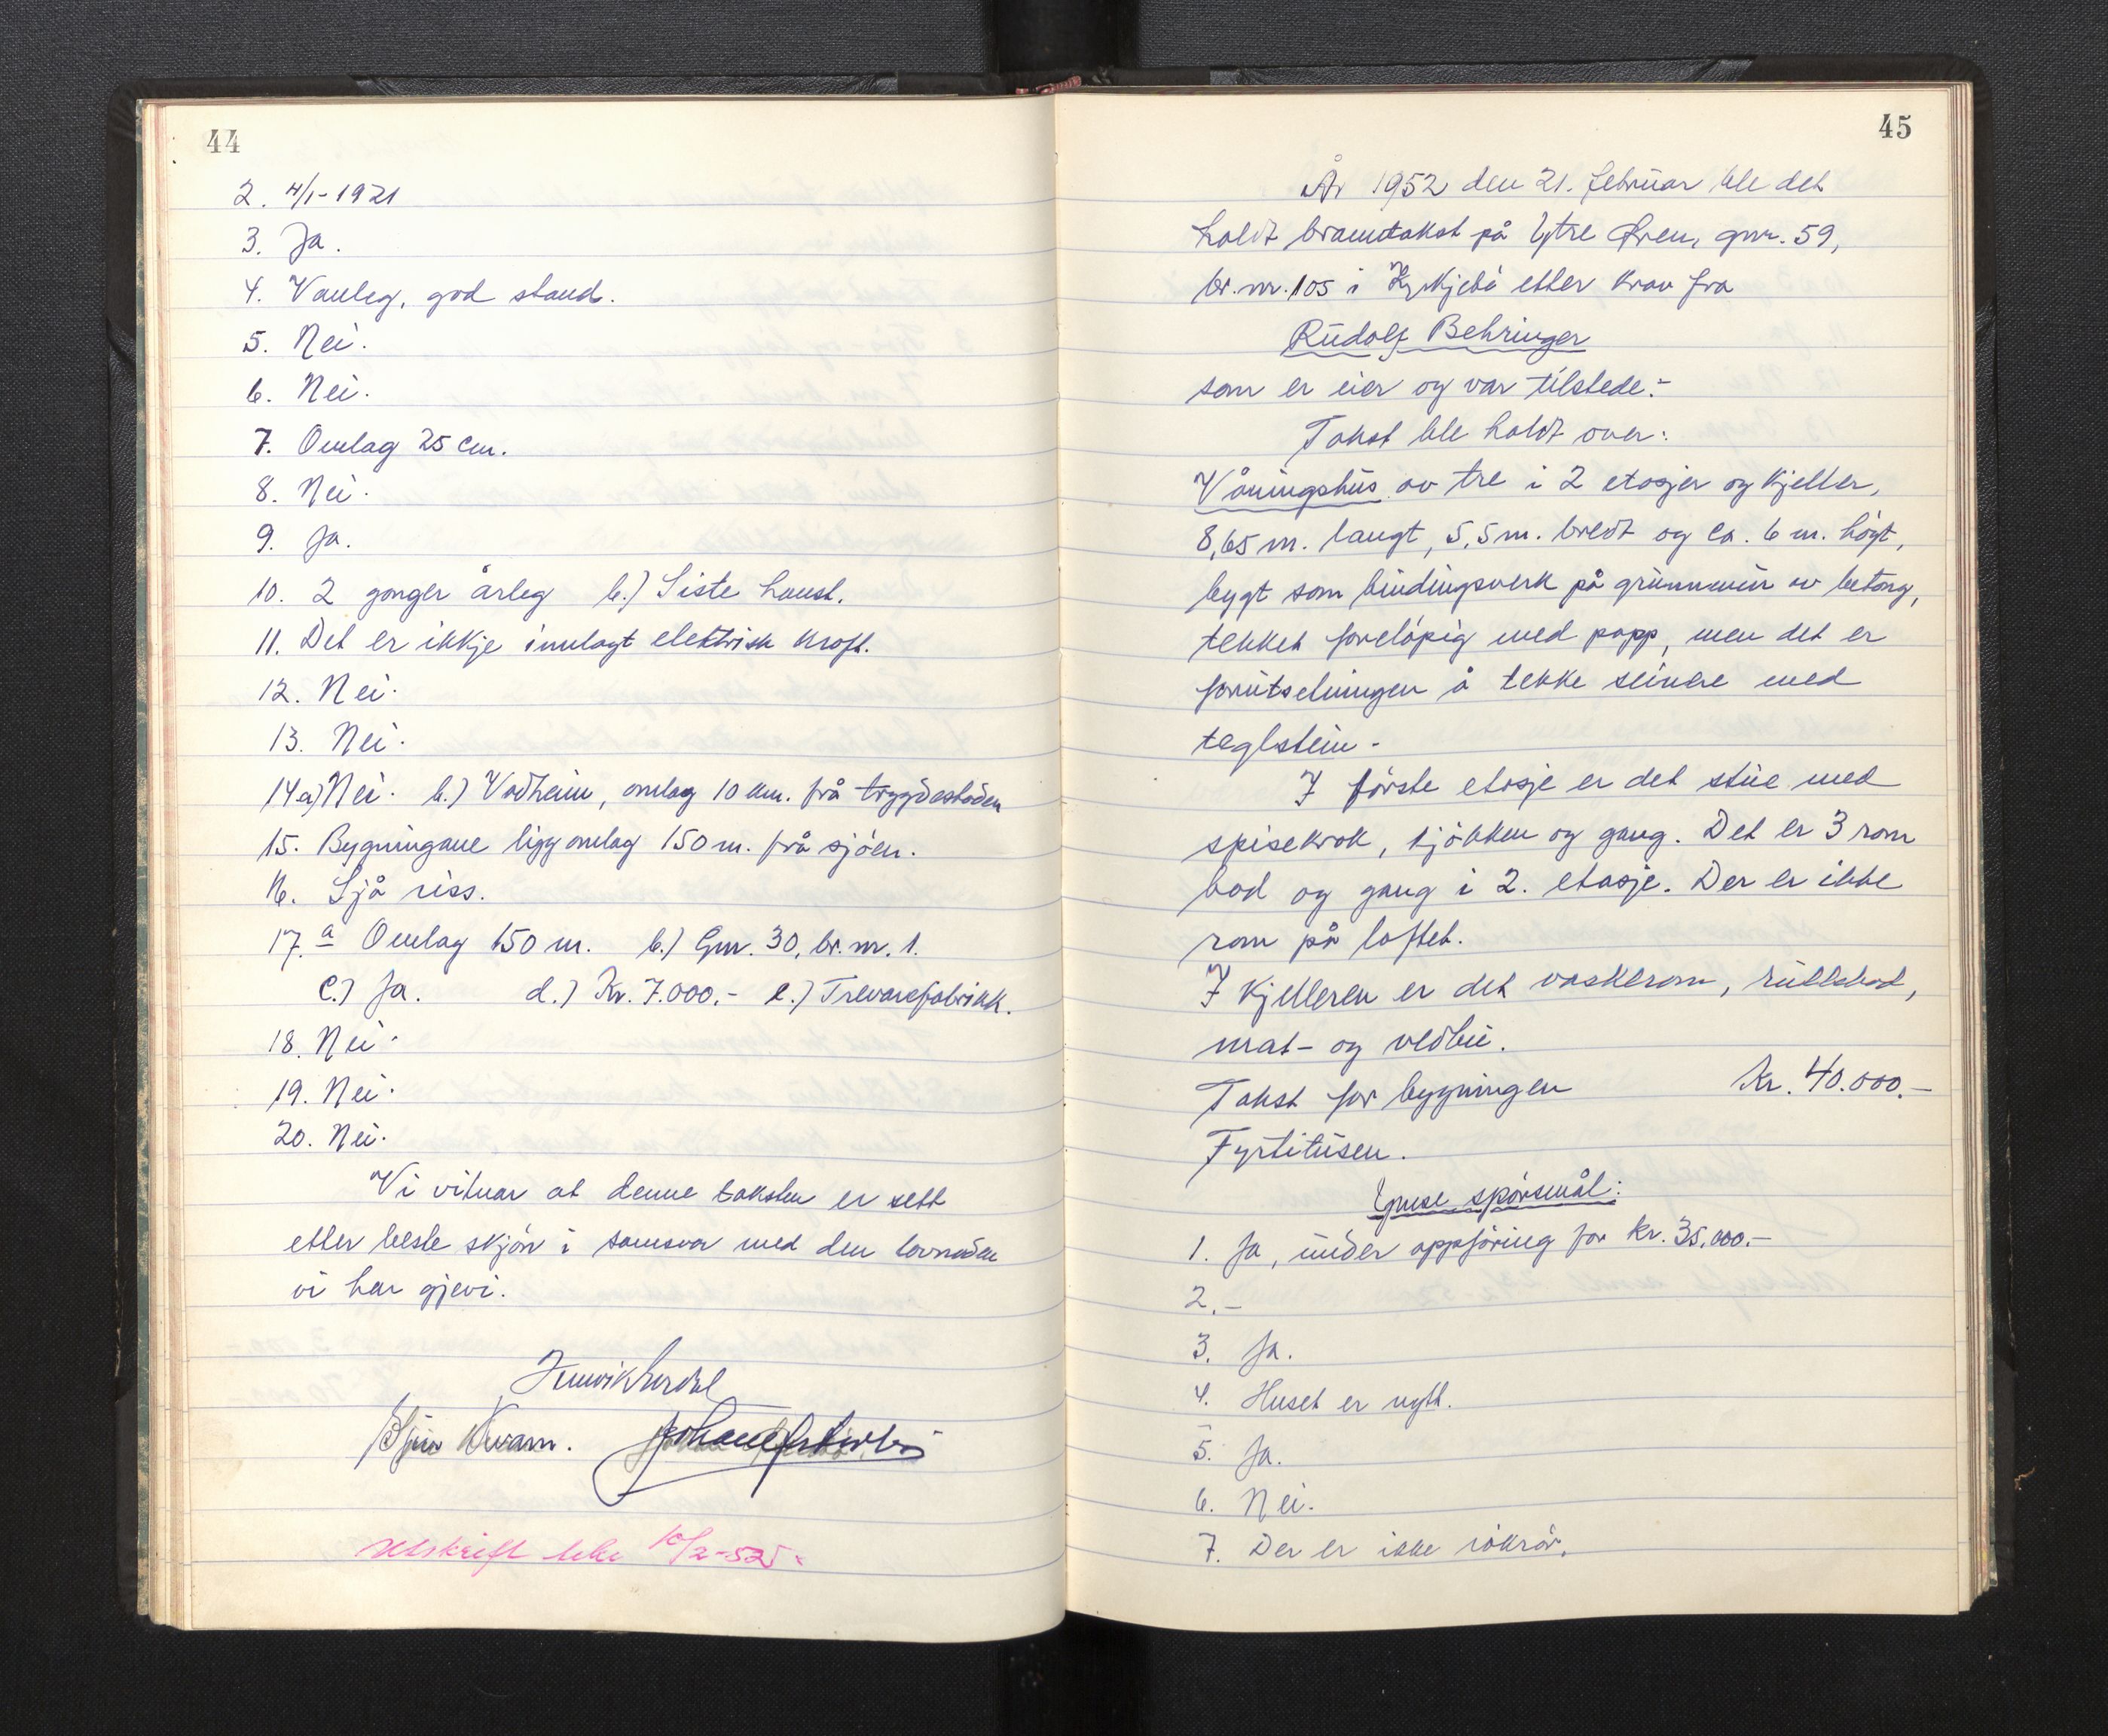 44
2. 4/1-1921
3. Ja.
4. Vanleg, god stand.
5. Nei.
6. Nei.
7. Omlag 25 cm.
8. Nei.
9. Ja.
10. 2 gonger årleg b.) Siste haust.
11. Det er ikkje innlagt elektrisk kraft.
12. Nei.
13. Nei.
14 a) Nei. b.) Vadheim, omlag 10 km. frå trygdestaden
15. Bygningane ligg omlag 150 m. frå sjøen.
16. Sjå riss.
17. a Omlag 150 m. b.) Gnr. 30, br. nr. 1.
c.) Ja. d.) Kr. 7.000.- e.) Trevarefabrikk.
18. Nei.
19. Nei.
20. Nei.
Vi vitnar at denne taksten er sett
etter beste skjøn i samsvar med den lovnaden
vi har gjevi.
Kvam.
Utskrift 10/2-52
45
År 1952 den 21. februar ble det
holdt branntakst på Ytre Øren, gnr. 59,
br. nr. 105 i Kyrkjebø etter krav fra
Rudolf Behringer
som er eier og var tilstede:-
Takst ble holdt over:
Våningshus av tre i 2 etasjer og kjeller,
8,65 m. langt, 5,5 m. bredt og ca. 6 m. høgt,
bygt som bindingsverk på grunnmur av betong,
tekket foreløpig med papp, men det er
forutsetningen å tekke seinere med
teglstein.-
I første etasje er det stue med
spisekrok, kjøkken og gang. Det er 3 rom
bad og gang i 2. etasje. Der er ikke
rom på loftet.
I kjelleren er det vaskerom, rullebod,
mat- og vedbu.
Takst for bygningen Kr. 40.000.-
Fyrtitusen.
Ymse spørsmål:
1. Ja, under oppføring for kr. 35.000.-
2. -
3. Ja.
4. Huset er nytt.
5. Ja.
6. Nei.
7. Der er ikke rökrör.